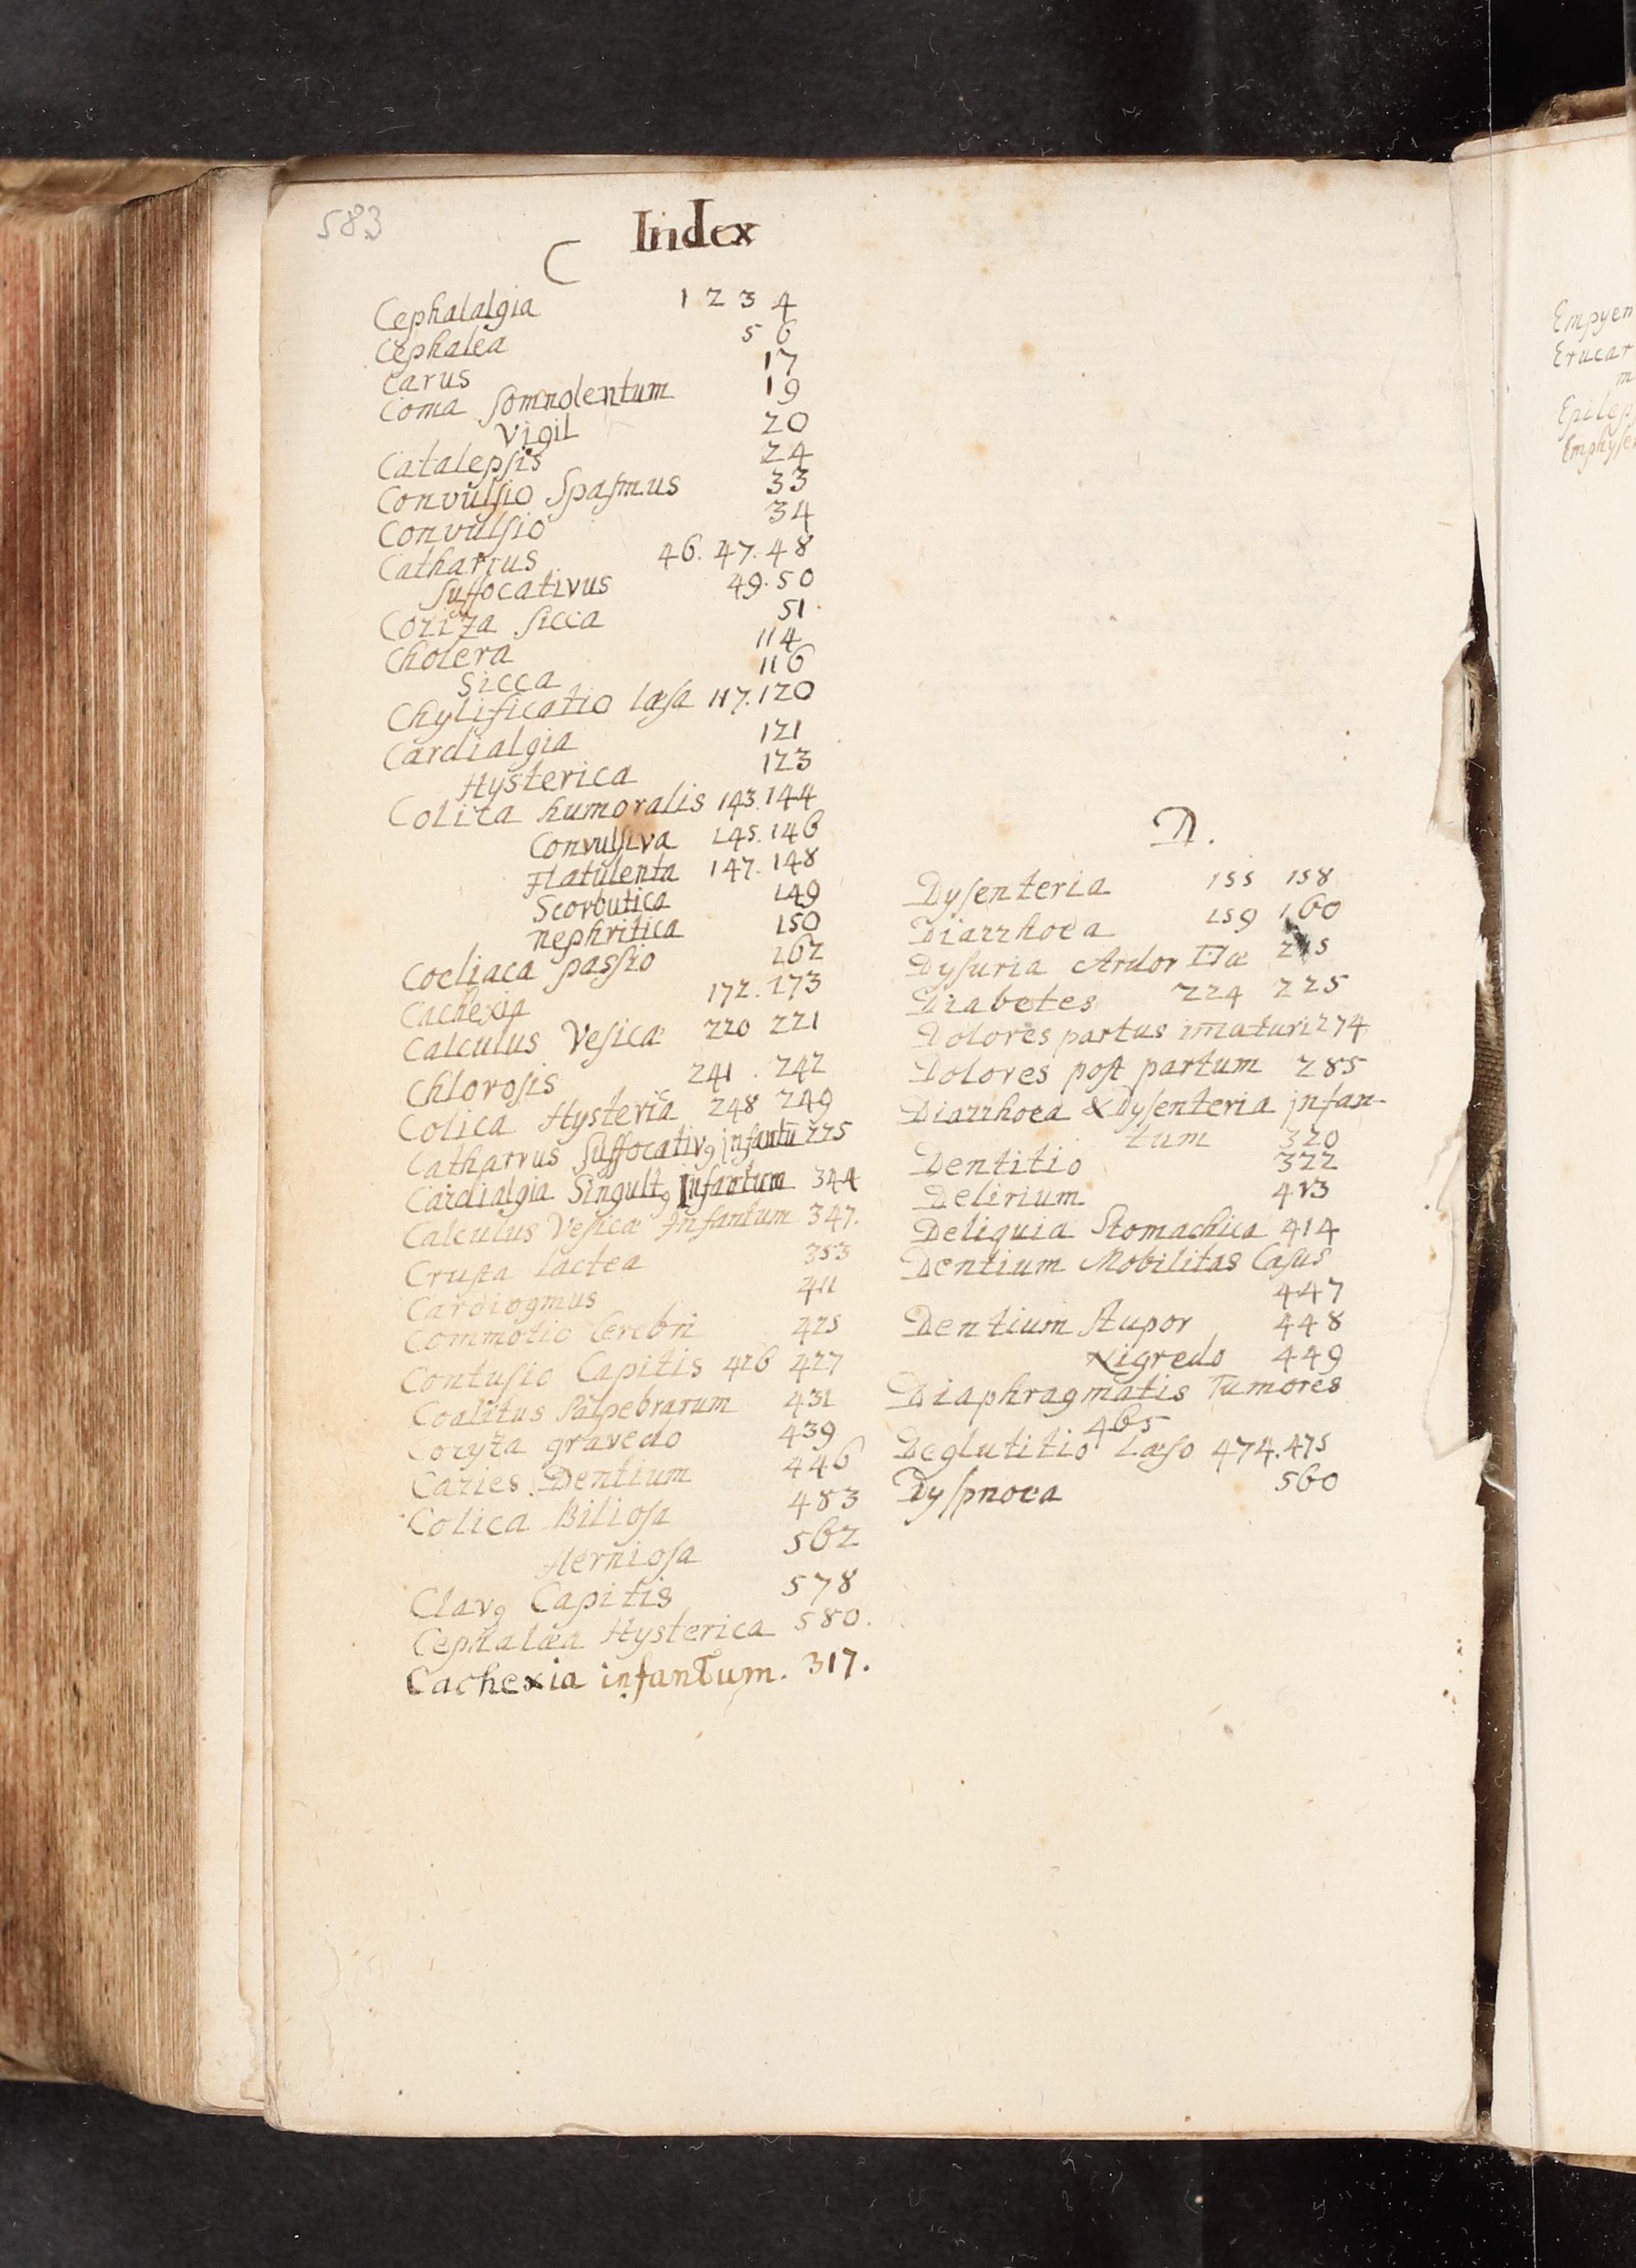 583
Index
C
Cephalalgia 1 2 3 4
Cephalea 5 6
Carus 17
Coma Somnolentum 19
Vigil 20
Catalepsis 24
Convulsio Spasmus 33
Convulsio 34
Catharrus 46. 47. 48
Suffocativus 49. 50
Coriza Sicca 51
Cholera 114
Sicca 116
Chylificatio læsa 117. 120
Cardialgia 121
Hysterica 123
Colica humoralis 143. 144
Convulsiva 145. 146
Flatulenta 147. 148
Scorbutica 149
nephritica 150
Coeliaca passio 162
Cachexia 172. 173
Calculus Vesicæ 220 221
Chlorosis 241. 242
Colica Hysteric̄a 248 249
Catharrus Suffocativꝯ infantū
Cardialgia Singultꝯ Infantum 344
Calculus Vesicæ Infantum 347.
Crusta lactea 353
Cardiogmus 411
Commotio Cerebri 425
Contusio Capitis 426 427
Coalitus Palpebrarum 431
Coryza gravedo 439
Caries Dentium 446
Colica Biliosa 483
Herniosa 562
Clavꝯ Capitis 578
Cephalæa Hysterica 580.
Cachexia infantum. 317.
D.
Dysenteria 155 158
Diarrhoea 159 160
Dysuria Ardor
Diabetes 224 225
Dolores partus im̄aturi 274
Dolores post partum 285
Diarrhoea & Dysenteria infan-
tum 320
Dentitio 322
Delirium 413
Deliquia Stomachica 414
Dentium Mobilitas Casus
447
Dentium Stupor 448
Nigredo 449
Diaphragmatis Tumores
465
Deglutitio Læso 474. 475
Dyspnoea 560
Empyem
Erucar
m
Epilep
Emphyse